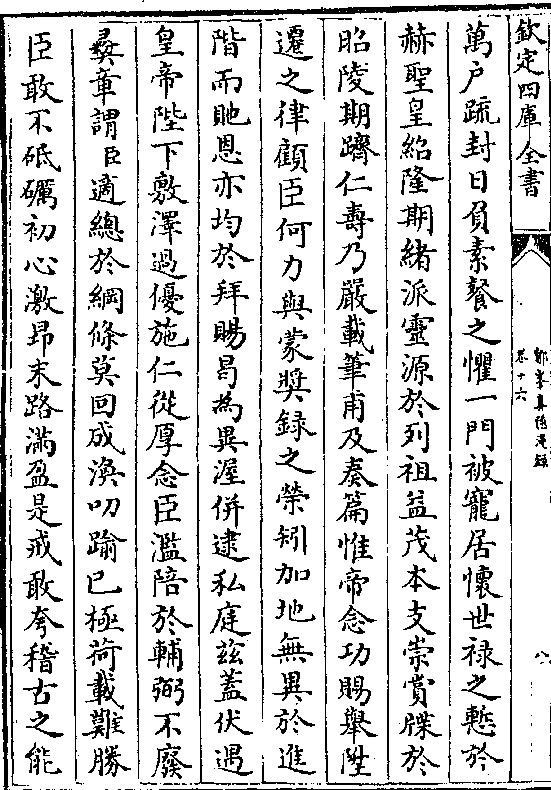 欽定四庫全書
鄮峯真隱漫錄
卷十六
八
萬户疏封日負素餐之懼一門被寵居懷世禄之慙於
赫聖皇紹隆期緒派靈源於列祖益茂本支崇賞牒於
昭陵期躋仁壽乃嚴載筆甫及奏篇惟帝念功賜舉陞
遷之律顧臣何力與蒙奬録之榮矧加地無異於進
階而貤恩亦均於拜賜曷為異渥併逮私庭兹蓋伏遇
皇帝陛下敷澤過優施仁從厚念臣濫陪於輔弼不廢
彞章謂臣適總於綱條莫回成渙叨踰已極荷載難勝
臣敢不砥礪初心激昻末路滿盈是戒敢夸稽古之能